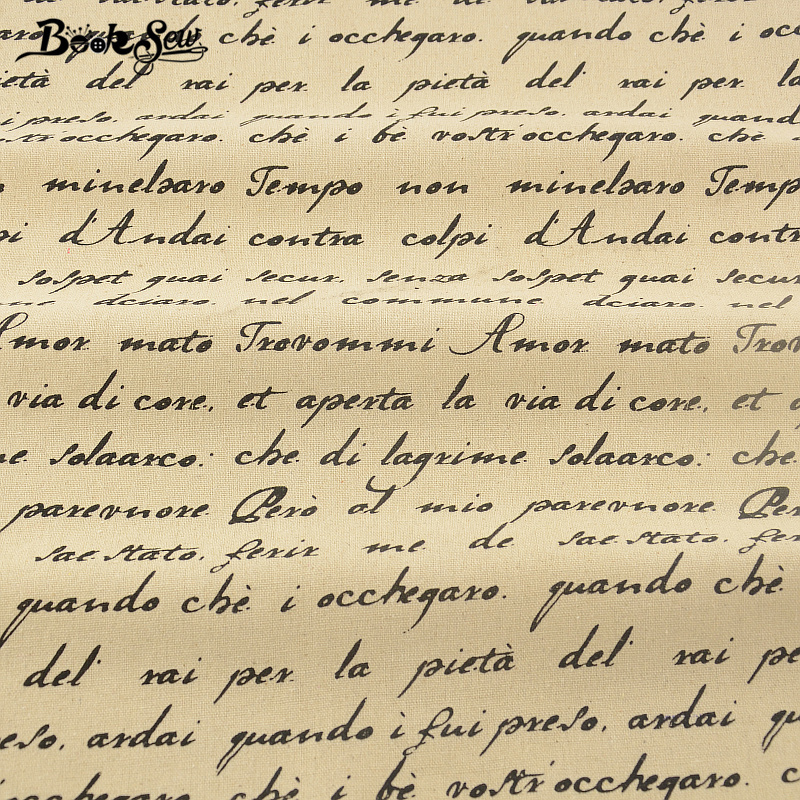 Book Sew
chè i occhegaro. quando chè i occ
pietà del' rai per. la pietà del' rai per. la
i preso, ardai quando i fui preso, ardai quand
occhegaro. chè i bè vostr'occhegaro. chè
minelsaro Tempo non minelsaro Temp
pi d'Andai contra colpi d'Andai contr
sospet guai secur. senza sospet guai secur
dciaro. nel commune dciaro. nel
Amor mato Trovommi Amor mato Trov
via di core, et aperta la via di core, et a
me solaarco: che di lagrime solaarco: che
parevuore Però al mio parevuore Per
saestato. ferir me de saestato. fer
quando chè i occhegaro. quando chè
del' rai per la pietà del' rai pe
eso, ardai quando i fui preso, ardai qu
occhegaro. chè i bè vostr'occhegaro. c